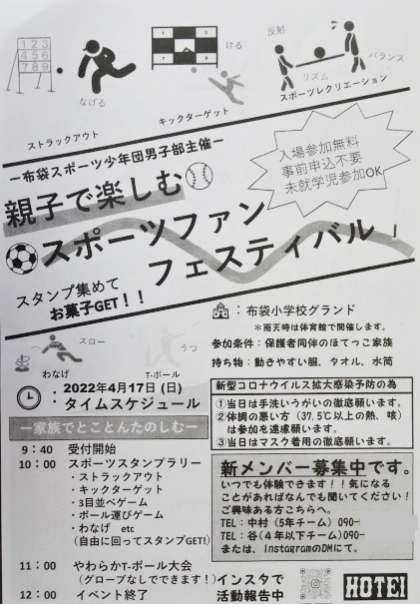 1 2 3
4 5 6
7 8 9
なげる
ストラックアウト
ける
キックターゲット
反射
バランス
リズム
スポーツレクリエーション
ー布袋スポーツ少年団男子部主催ー
入場参加無料
事前申込不要
未就学児参加OK
親子で楽しむ
スポーツファン
フェスティバル
スタンプ集めて
お菓子GET！！
スロー
わなげ
うつ
T-ボール
：布袋小学校グランド
＊雨天時は体育館で開催します。
参加条件：保護者同伴のほてっこ家族
持ち物：動きやすい服、タオル、水筒
：2022年4月17日 (日)
タイムスケジュール
ー家族でとことんたのしむー
9：40 受付開始
10：00 スポーツスタンプラリー
・ストラックアウト
・キックターゲット
・3目並べゲーム
・ボール運びゲーム
・わなげ etc
(自由に回ってスタンプGET!)
11：00 やわらかT-ボール大会
(グローブなしでできます！)
12：00 イベント終了
新型コロナウイルス拡大感染予防の為
①当日は手洗いうがいの徹底願います。
②体調の悪い方（37.5℃以上の熱、咳）
は参加を遠慮願います。
③当日はマスク着用の徹底願います。
新メンバー募集中です。
いつでも体験できます！！気になる
ことがあればなんでも聞いてください！
ご興味ある方こちらへ。
TEL：中村（5年チーム）090-
TEL：谷（４年以下チーム）090-
または、InstagramのDMにて。
インスタで
活動報告中
HOTEI